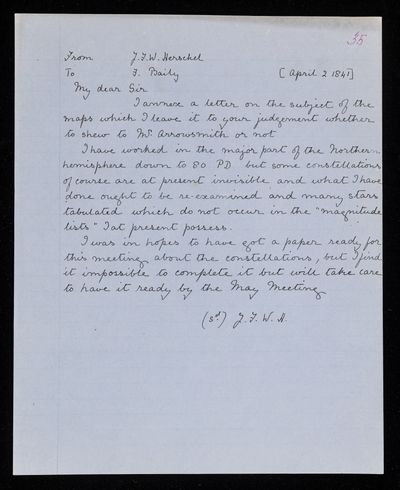 35
From J.F.W. Herschel
To F. Baily [April 2 1841]
My dear Sir
I annex a letter on the subject of the
maps which I leave it to your judgement whether
to shew to Mr Arrowsmith or not
I have worked in the major part of the Northern
hemisphere down to 80 PD. but some constellations
of course are at present invisible and what I have
done ought to be re-examined and many stars
tabulated which do not occur in the "magnitude
lists" I at present possess.
I was in hopes to have got a paper ready for
this meeting about the constellations, but I find
it impossible to complete it but will take care
to have it ready by the May Meeting
(sd) J. F. W. H.